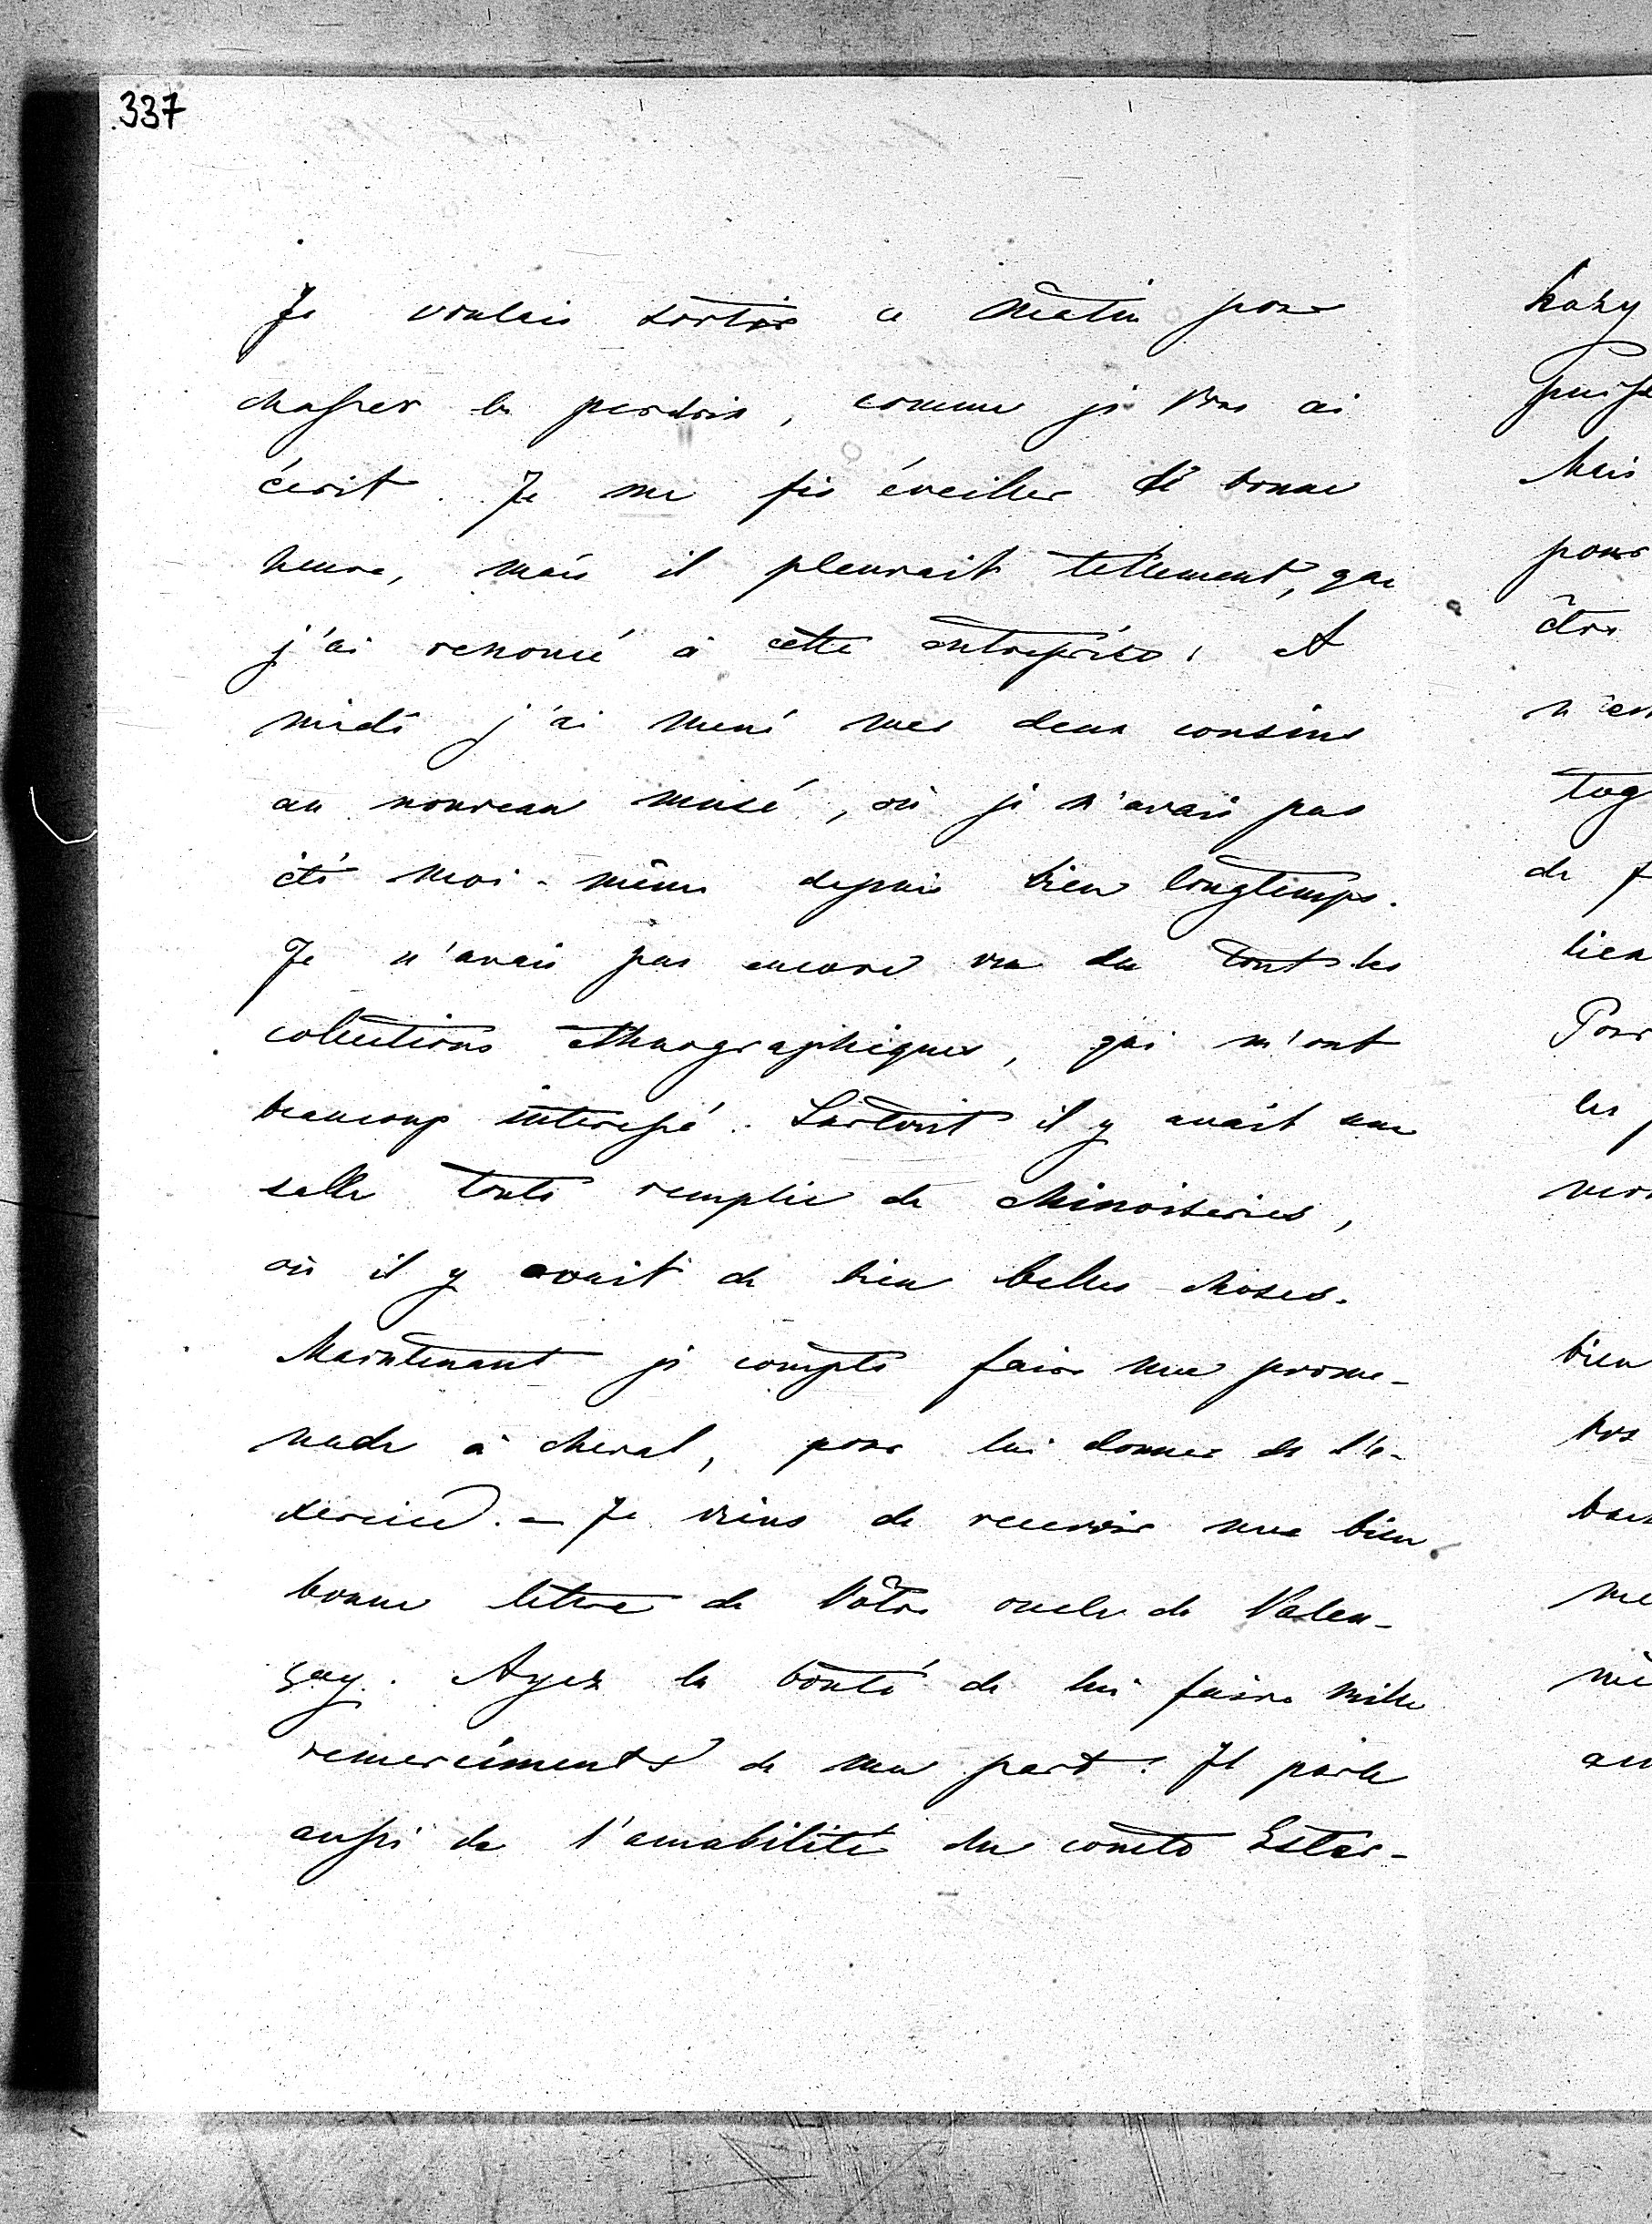 337
Je voulais sortir ce matin pour
chasser la perdrix, comme je Vous ai
écrit. Je me fis éveiller de bonne
heure, mais il pleuvait tellement, que
j'ai renoncé à cette entreprise. A
midi j'ai mené mes deux cousins
au nouveau musé, où je n'avais pas
été moi-même depuis bien longtemps.
Je n'avais pas encore vu du tout les
collections ethnographiques, qui m'ont
beaucoup interessé. Surtout il y avait une
salle toute remplie de chinoiseries,
où il y avait de bien belles choses.
Maintenant je compte faire une prome-
nade à cheval, pour lui donner de l'e-
xercice. – Je viens de recevoir une bien
bonne lettre de Vôtre oncle de Valen-
çay. Ayez la bonté de lui faire mille
remerciments de ma part. Il parle
aussi de l'amabilité du comte Ester-
hazy
puisse
Mais
pour
être
n'en
tog
de f
bien
Pour
les p
bien
vos